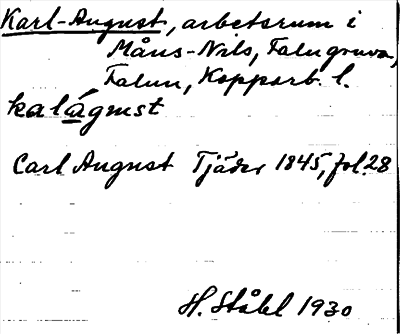 Karl-August, arbetsrum i
Måns-Nils, Falu gruva,
Falun, Kopparb. l.
kalágust
Carl August Tjäder 1845, fol. 28
H. Ståhl 1930